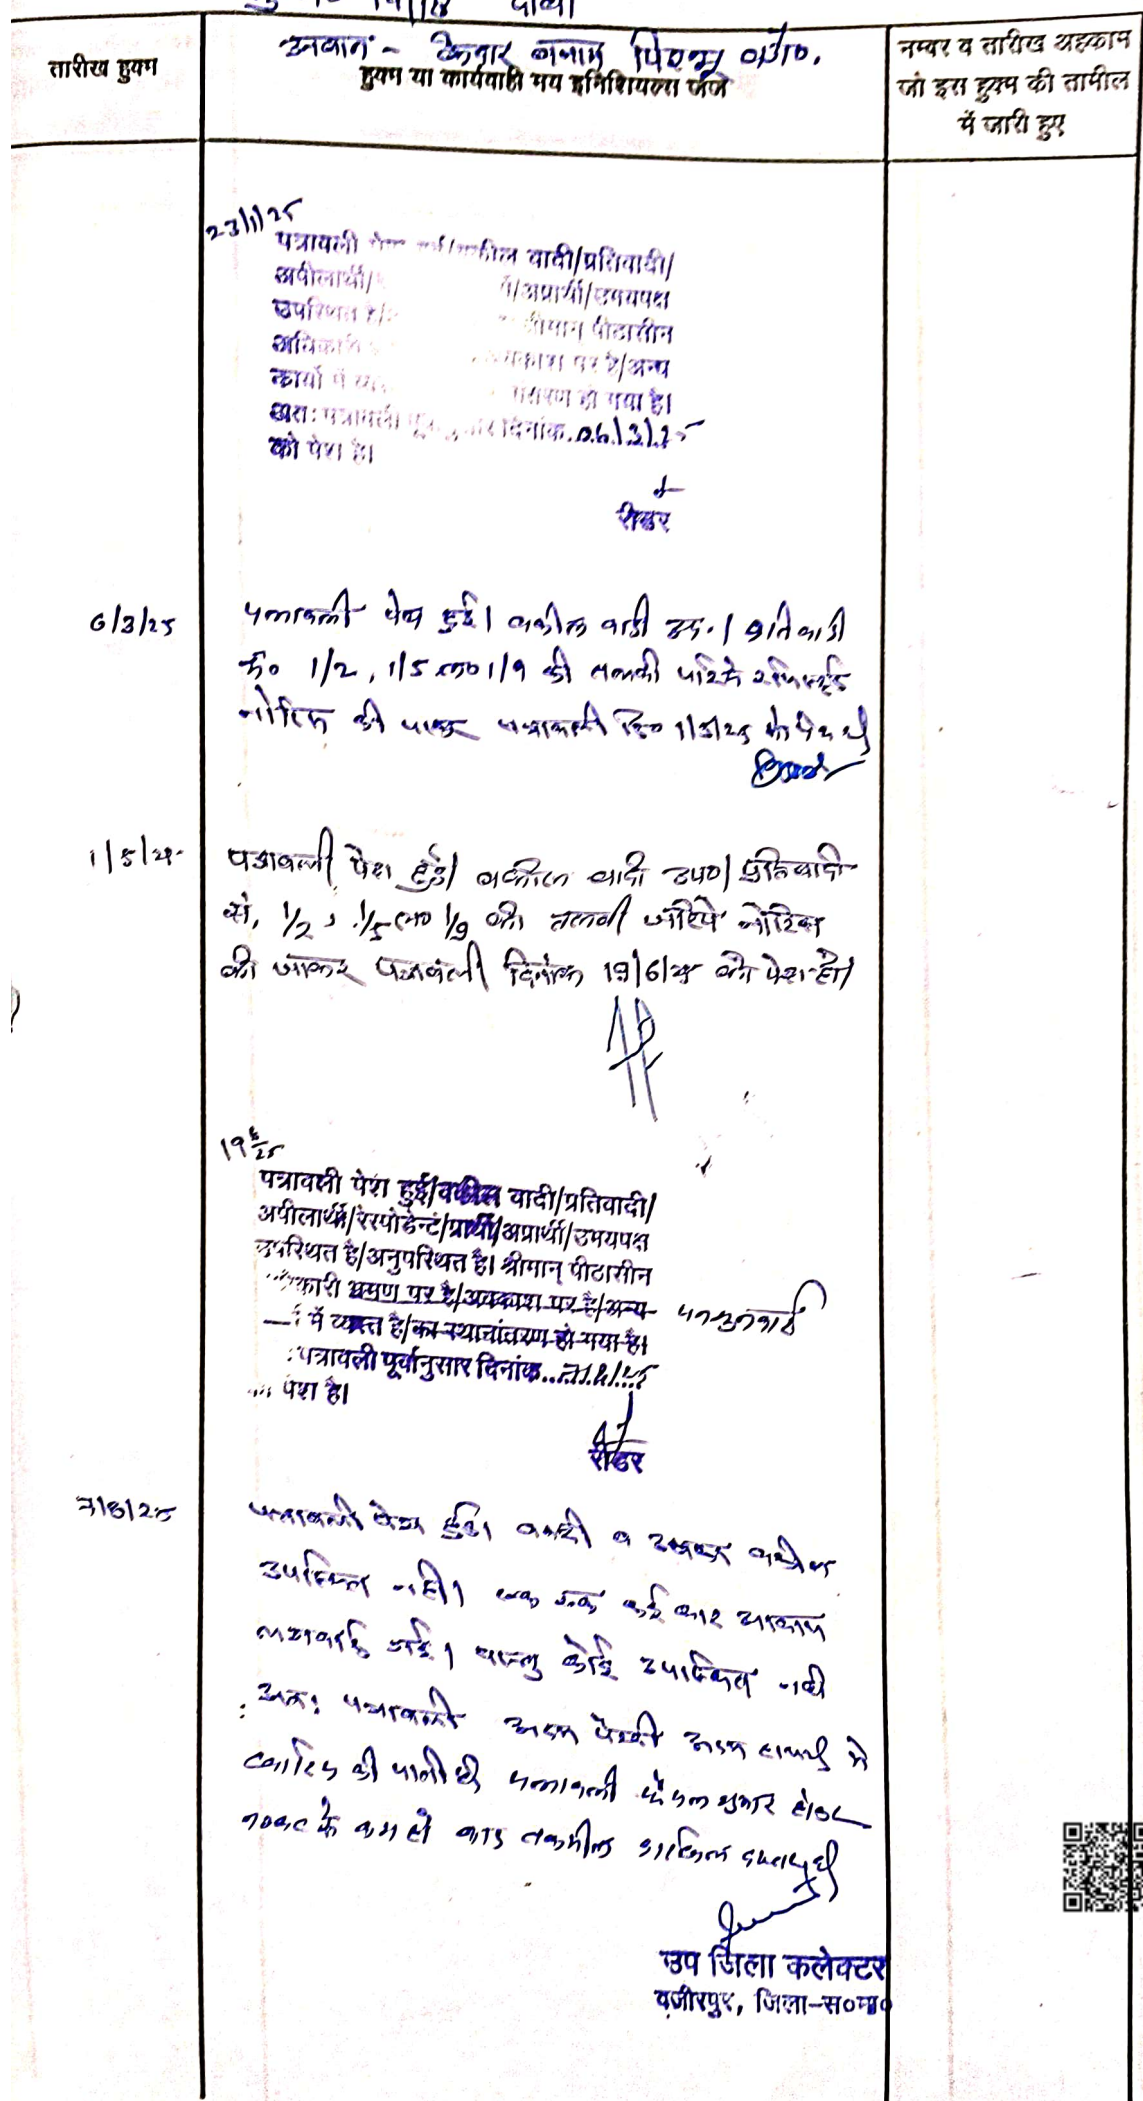 दावा
उनवान - केदार बनाम
तारीख हुक्म
हुक्म या कार्यवाही मय इनिशियल्स जज
नम्बर व तारीख अहकाम
जो इस हुक्म की तामील
में जारी हुए
23/1/25
पत्रावली वकील वादी/प्रतिवादी/
अपीलार्थी/ /अप्रार्थी/उभयपक्ष
उपस्थित है/ श्रीमान् पीठासीन
अधिकारी अवकाश पर है/अन्य
कार्यो में हो गया है।
अतः पत्रावली दिनांक 06/3/25
को पेश है।
रीडर
6/3/25
पत्रावली पेश हुई। वकील वादी उप.। प्रतिवादी
1/2, 1/5 1/9 की तलबी जरिये रजिस्टर्ड
नोटिस की जाकर पत्रावली दि० 1/5/25 को पेश हो
1/5/25
पत्रावली पेश हुई। वकील वादी उप०। प्रतिवादी
सं. 1/2, 1/5 1/9 की तलबी जरिये नोटिस
की जाकर पत्रावली दिनांक 19/6/25 को पेश हो।
19/6/25
पत्रावली पेश हुई/वकील वादी/प्रतिवादी/
अपीलार्थी/रेस्पोडेन्ट/प्रार्थी/अप्रार्थी/उभयपक्ष
उपस्थित है/अनुपस्थित है। श्रीमान् पीठासीन
कारी भ्रमण पर है/अवकाश पर है/अन्य
में व्यस्त है/का स्थानांतरण हो गया है।
पत्रावली पूर्वानुसार दिनांक
पेश है।
रीडर
7/8/25
पत्रावली पेश हुई। वादी व उसका वकील
उपस्थित नही। कई बार आवाज
लगवाई गई। परन्तु कोई उपस्थित नही
अतः पत्रावली अदम पैरवी अदम हाजरी मे
खारिज की जाती है पत्रावली फैसल शुमार होकर
नम्बर से कम हो बाद तकमील दाखिल दफ्तर हो
उप जिला कलेक्टर
वजीरपुर, जिला-स०मा०